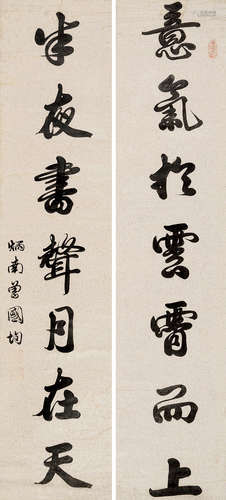 意氣於雲霄而上
半夜書聲月在天
炳南曾國